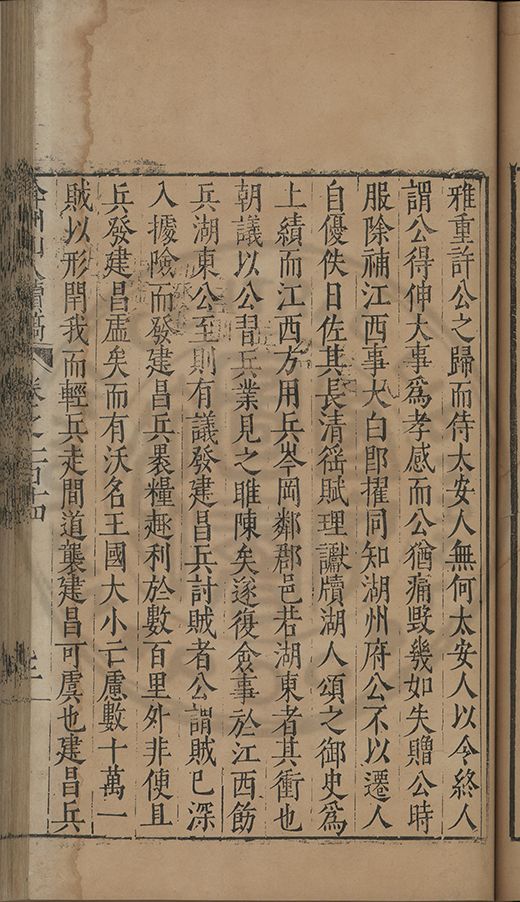 雅重許公之歸而侍太安人無何太安人以令終人
謂公得伸大事爲孝感而公猶痛毀幾如失贈公時
服除補江西事大白卽擢同知湖州府公不以遷人
自優佚日佐其長清徭賦理讞牘湖人頌之御史爲
上績而江西方用兵岑岡鄰郡邑若湖東者其衝也
朝議以公習兵業見之睢陳矣遂復僉事於江西飭
兵湖東公至則有議發建昌兵討賊者公謂賊已深
入據險而發建昌兵裹糧趣利於數百里外非便且
兵發建昌虛矣而有沃名王國大小亡慮數十萬一
賊以形閉我而輕兵走間道襲建昌可虞也建昌兵
弇州山人續稿 卷之一百十四